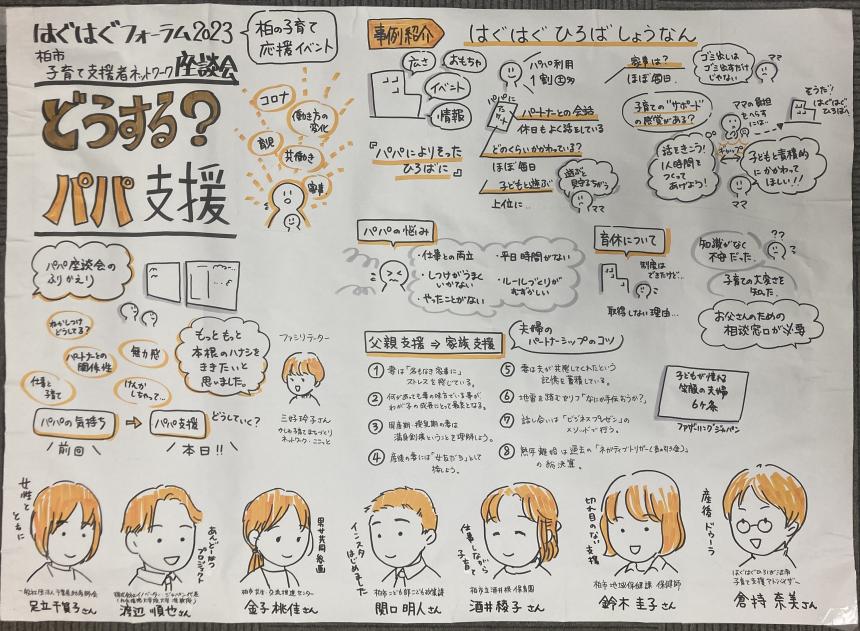 はぐはぐフォーラム2023
柏市
子育て支援者ネットワーク座談会
どうする?
パパ支援
柏の子育て
応援イベント
コロナ
働き方の
変化
育児
共働き
家事
事例紹介
はぐはぐひろばしょうなん
広さ
おもちゃ
イベント
情報
『パパによりそった
ひろばに』
パパ利用
1割
パパに
パートナーとの会話
休日もよく話をしている
どのくらいかかわっている?
ほぼ毎日
子どもと遊ぶ
上位に…
遊ぶと
見守るちがう
ママ
家事は?
ほぼ毎日
ゴミ出しは
ゴミ出すだけ
じゃない
ママ
子育ての"サポート"
の感覚がある?
話をきこう!
1人時間を
つくって
あげよう!
ママの負担
をへらす
には…
ギャップ
ママ
子どもと積極的
にかかわって
ほしい!!
そうだ!
はぐはぐ
ひろばへ
パパの悩み
・仕事との両立
・しつけがうまく
いかない
・やったことがない
・平日時間がない
・ルールづくりが
むずかしい
育休について
制度は
できたけど…
取得しない理由…
知識がなく
不安だった…
子育ての大変さを
知った
お父さんのための
相談窓口が必要
パパ座談会の
ふりかえり
ねかしつけ
どうしてる?
パートナーとの
関係性
無力感
仕事と
子育て
けんか
しちゃって…
もっともっと
本根のハナシを
ききたいと
思いました。
パパの気持ち
⇒
パパ支援
どうしていく?
\前回/
\本日!!/
ファシリテーター
三好玲子さん
父親支援⇒家族支援
夫婦の
パートナーシップのコツ
① 妻は「名もなき家事」に
ストレスを感じている。
② 何があっても妻の味方でいる事が
わが子の成長にとって最善となる。
③ 周産期・授乳期の妻は
満身創痍ということを理解しよう。
④ 産後の妻には「女友だち」として
接しよう。
⑤ 妻は夫が共感してくれたという
記憶を蓄積している。
⑥ 地雷を踏むセリフ「なにか手伝おうか?」
⑦ 話し合いは「ビジネスプレゼン」の
メソッドで行う。
⑧ 熟年離婚は過去の「ネガティブトリガー(負の引き金)」
の総決算。
子どもが憧れる
笑顔の夫婦
6ヶ条
ファザーリングジャパン
女性と
ともに
足立千賀子さん
あんどーなつ
プロジェクト
渡辺順也さん
男女共同参画
金子桃佳さん
インスタ
はじめました
関口明人さん
仕事しながら
子育て
柏市立酒井根保育園
酒井綾子さん
切れ目のない支援
柏市地域保健課 保健師
鈴木圭子さん
産後ドゥーラ
子育て支援アドバイザー
倉持奈美さん